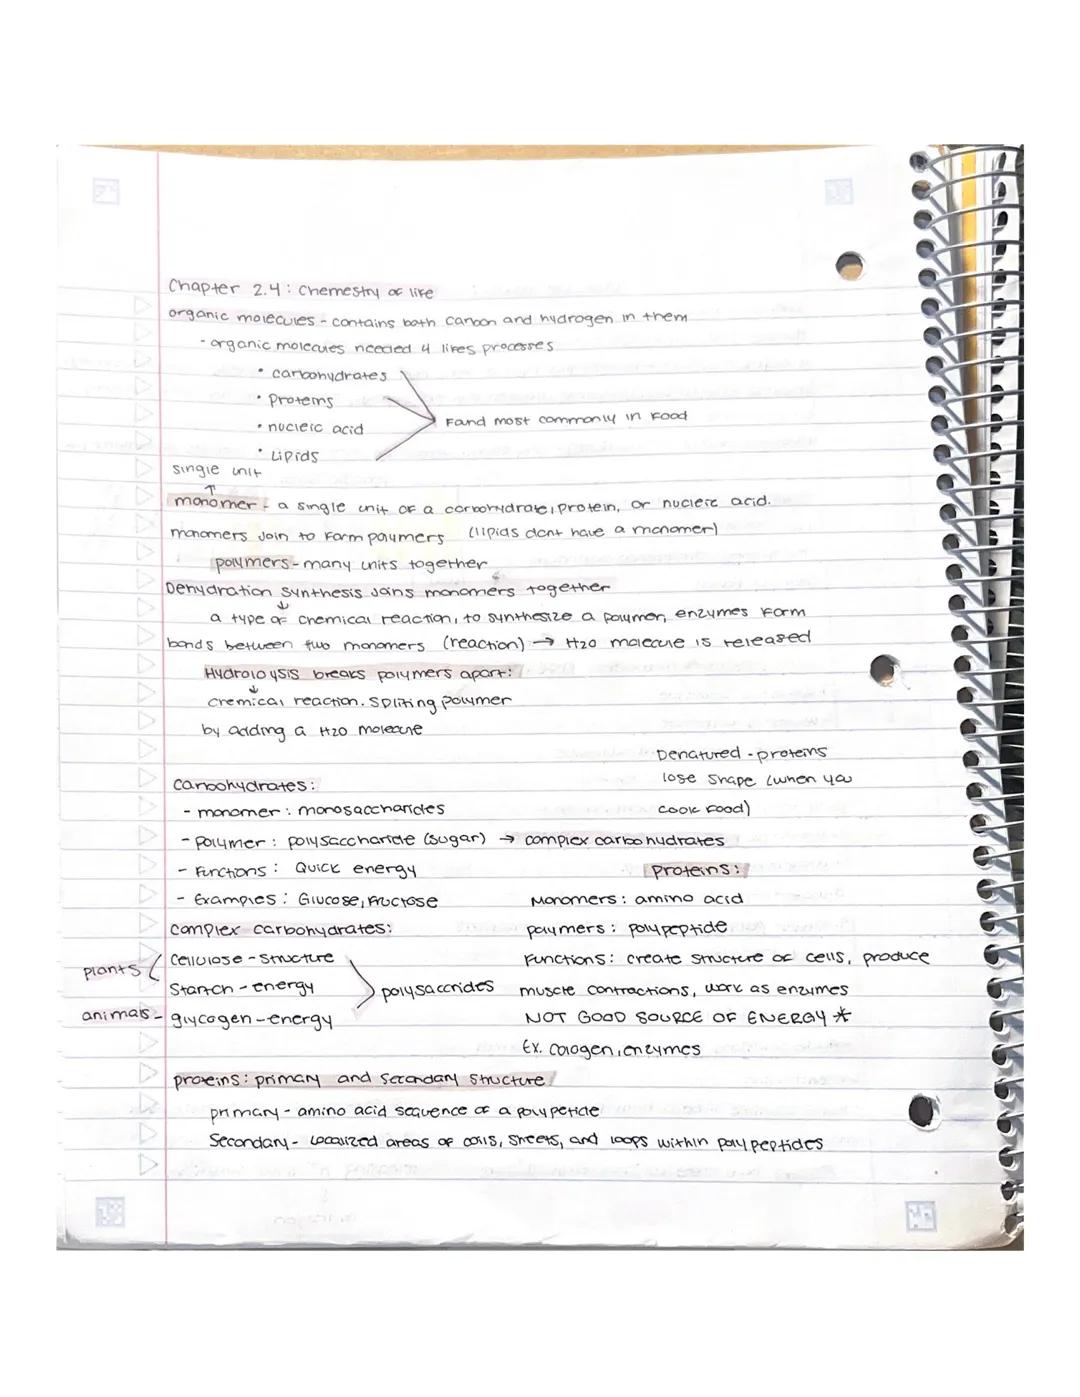 Chapter 2.4: Chemestry of life
organic molecules - contains both carbon and hydrogen in them
- organic molecules needed 4 lifes processes
• carbohydrates
• Proteins
• nucleic acid
• Lipids
Fand most commonly in Food
single unit
↑
monomer - a single unit of a carbohydrate, protein, or nucleic acid.
monomers join to form polymers (lipids dont have a monomer)
polymers - many units together
Dehydration synthesis joins monomers together
↓
a type of chemical reaction, to synthesize a polymer, enzymes form
bonds between two monomers (reaction) → H2O molecule is released
Hydroloysis breaks polymers apart:
↓
chemical reaction. Spliting polymer
by adding a H2O molecule
Denatured - proteins
lose shape (when you
cook food)
carbohydrates:
- monomer: monosaccharides
- polymer: polysaccharide (sugar) → complex carbohydrates
- Functions: Quick energy
- Examples: Glucose, Fructose
complex carbohydrates:
plants
Cellulose - Structure
Starch - energy
animals - glycogen - energy
polysaccrides
proteins:
Monomers: amino acid
polymers: polypeptide
Functions: create structure of cells, produce
muscle contractions, work as enzymes
NOT GOOD SOURCE OF ENERGY *
Ex. Collagen, enzymes
proteins: primary and Secondary Structure
primary - amino acid sequence of a polypetide
Secondary - Localized areas of coils, Sheets, and loops within polypeptides